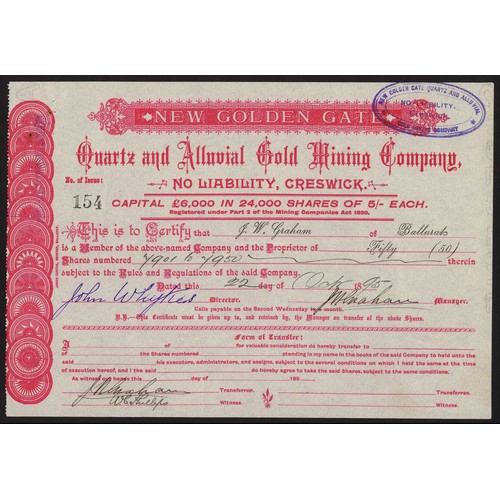 NEW GOLDEN GATE
NEW GOLDEN GATE QUARTZ AND ALLUVIAL
NO LIABILITY.
GOLD MINING COMPANY
Quartz and Alluvial Gold Mining Company,
No. of Issue:
154
NO LIABILITY, CRESWICK.
CAPITAL £6,000 IN 24,000 SHARES OF 5/- EACH.
Registered under Part 2 of the Mining Companies Act 1890.
This is to Certify that J. W. Graham of Ballarat
is a Member of the above-named Company and the Proprietor of Fifty (50)
Shares numbered 7901 to 7950 therein
subject to the Rules and Regulations of the said Company.
Dated this 22 day of Oct 1895
John W Hughes Director. Manager.
Calls payable on the Second Wednesday in month.
N.B. This Certificate must be given up, and retired, by the Manager on transfer of the above Shares.
Form of Transfer:
I of for valuable consideration do hereby transfer to
of the Shares numbered standing in my name in the books of the said Company to hold unto
the said his executors, administrators, and assigns, subject to the several conditions on which I held the same at the time
of execution hereof, and I the said do hereby agree to take the said Shares, subject to the same conditions.
As witness our hands this day of 189
Transferror. Transferree.
W E Phillips Witness. Witness.